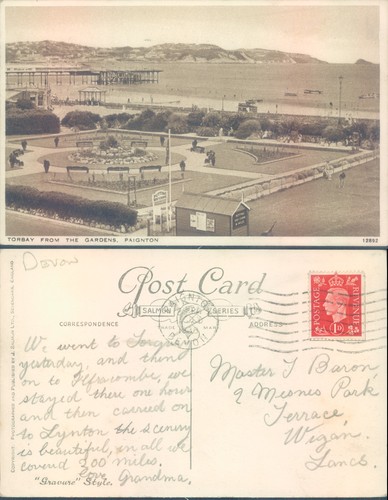 TORBAY FROM THE GARDENS, PAIGNTON 12892
Devon
Post Card
SALMON SERIES
CORRESPONDENCE
ADDRESS
MADE
PAIGNTON
DEVON
POSTAGE
REVENUE
1D
We went to
yesterday, and then
on to Ilfracombe, we
stayed there one hour
and then carried on
to Lynton the scenery
is beautiful, in all we
coverd 200 miles.
love Grandma.
Master T Baron
9 Mesnes Park
Terrace
Wigan.
Lancs.
"Gravure" Style.